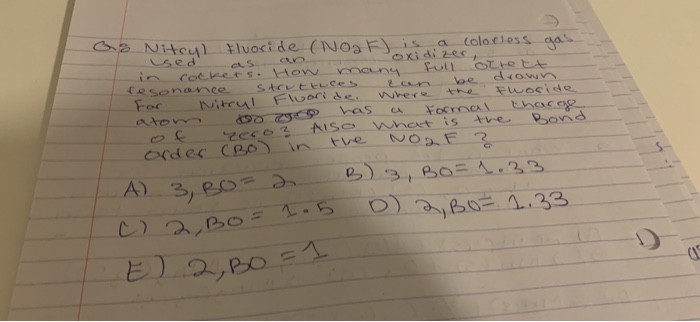 Q.8 Nitryl Fluoride (NO2F) is a colorless gas
used as an oxidizer,
in rockets. How many full octect
resonance structures can be drawn
For Nitryl Fluoride. Where the Fluoride
atom has a formal charge
of zero? Also what is the Bond
order (BO) in the NO2F?
A) 3, BO = 2 B) 3, BO = 1.33
C) 2, BO = 1.5 D) 2, BO = 1.33
E) 2, BO = 1